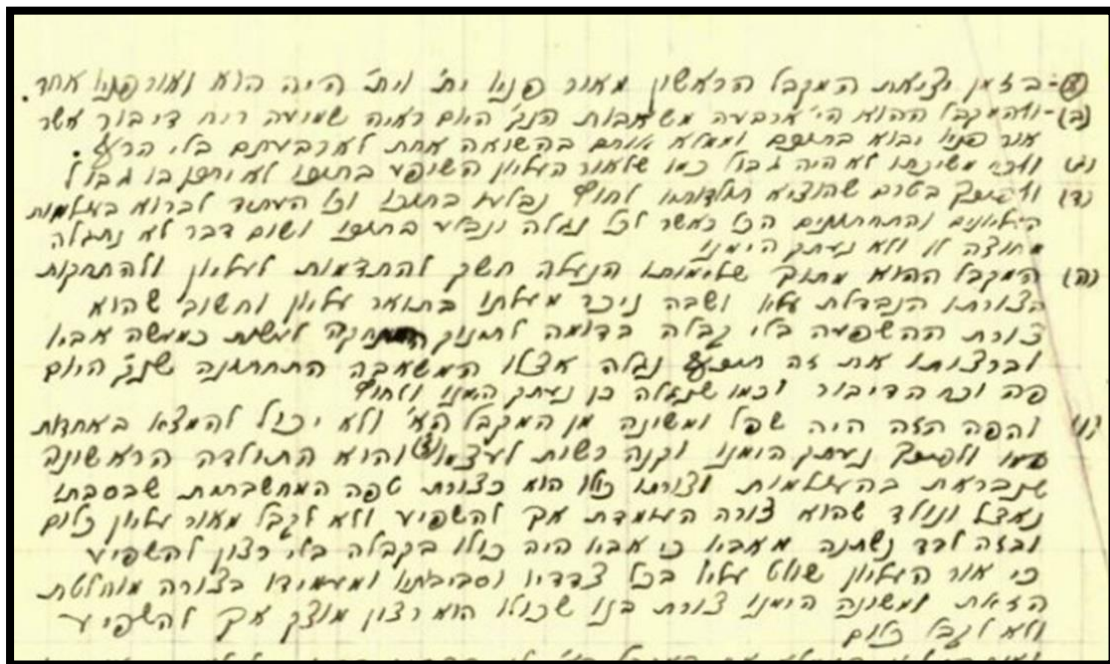 (א)- בזמן יציאת המקבל הראשון מאור פניו ית' וית' היה הוא ואור פניו אחד.
(ב)- והמקבל ההוא הי' ארבעה משאבות הנק' היום ראיה שמיעה ריח דיבור אשר
אור פניו יבוא בתוכם וממלא אותם בהשואה אחת לארבעתם בלי הרע.
(ג) ועבי משיכתו לא היה גבול כמו שלאור העליון השופע בתוכו לא יתכן בו גבול
(ד) בטרם שהוציא תולדותיו לחוץ נבלע בתוכו וכו' העתיד לברוא בעולמות
העליונים והתחתונים הכל כאשר לכל נגלה ונבלע בתוכו ושום דבר לא נתגלה
מחוצה לו ולא נעתק הימנו
(ה) המקבל ההוא מתוך שלימותו הנעלה חשק להתדמות לעליון ולהתחקות
הצורתו הנבדלת עליו ושבה ניכר מעלתו בתואר עליון וחשוב שהוא
צורת ההשפעה בלי קבלה בדומה לתינוק לעשות כמעשה אביו
וברצותו את זה נגלה אצלו המשאבה התחתונה שנק' היום
פה וכח הדיבור וכמו שנגלה כן נעתק הימנו ולחוץ
(ו) והפה הזה היה שפל ומשונה מן המקבל הא' ולא יכול להמצא באחדות
עמו ולפיכך נעתק הימנו וקנה רשות לעצמו והוא התולדה הראשונה
שנבראת בהעולמות וצורתו כולו הוא כצורת טפה המחשבתית שבסבתו
נאצל ונולד שהוא צורה העומדת אך להשפיע ולא לקבל מאור עליון כלום
ובזה לבד נשתנה מאביו כי אביו היה כולו בקבלה בלי רצון להשפיע
כי אור העליון שולט עליו בכל צדדיו וסביבותיו ומעמידו בצורה מוחלטת
הזאת ומשונה הימנו צורת בנו שכולו הוא רצון מוצק אך להשפיע
ולא לקבל כלום